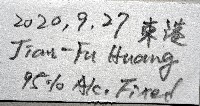 2020,9.27 東港
Jian-Fu Huang
95% Alc. Fixed